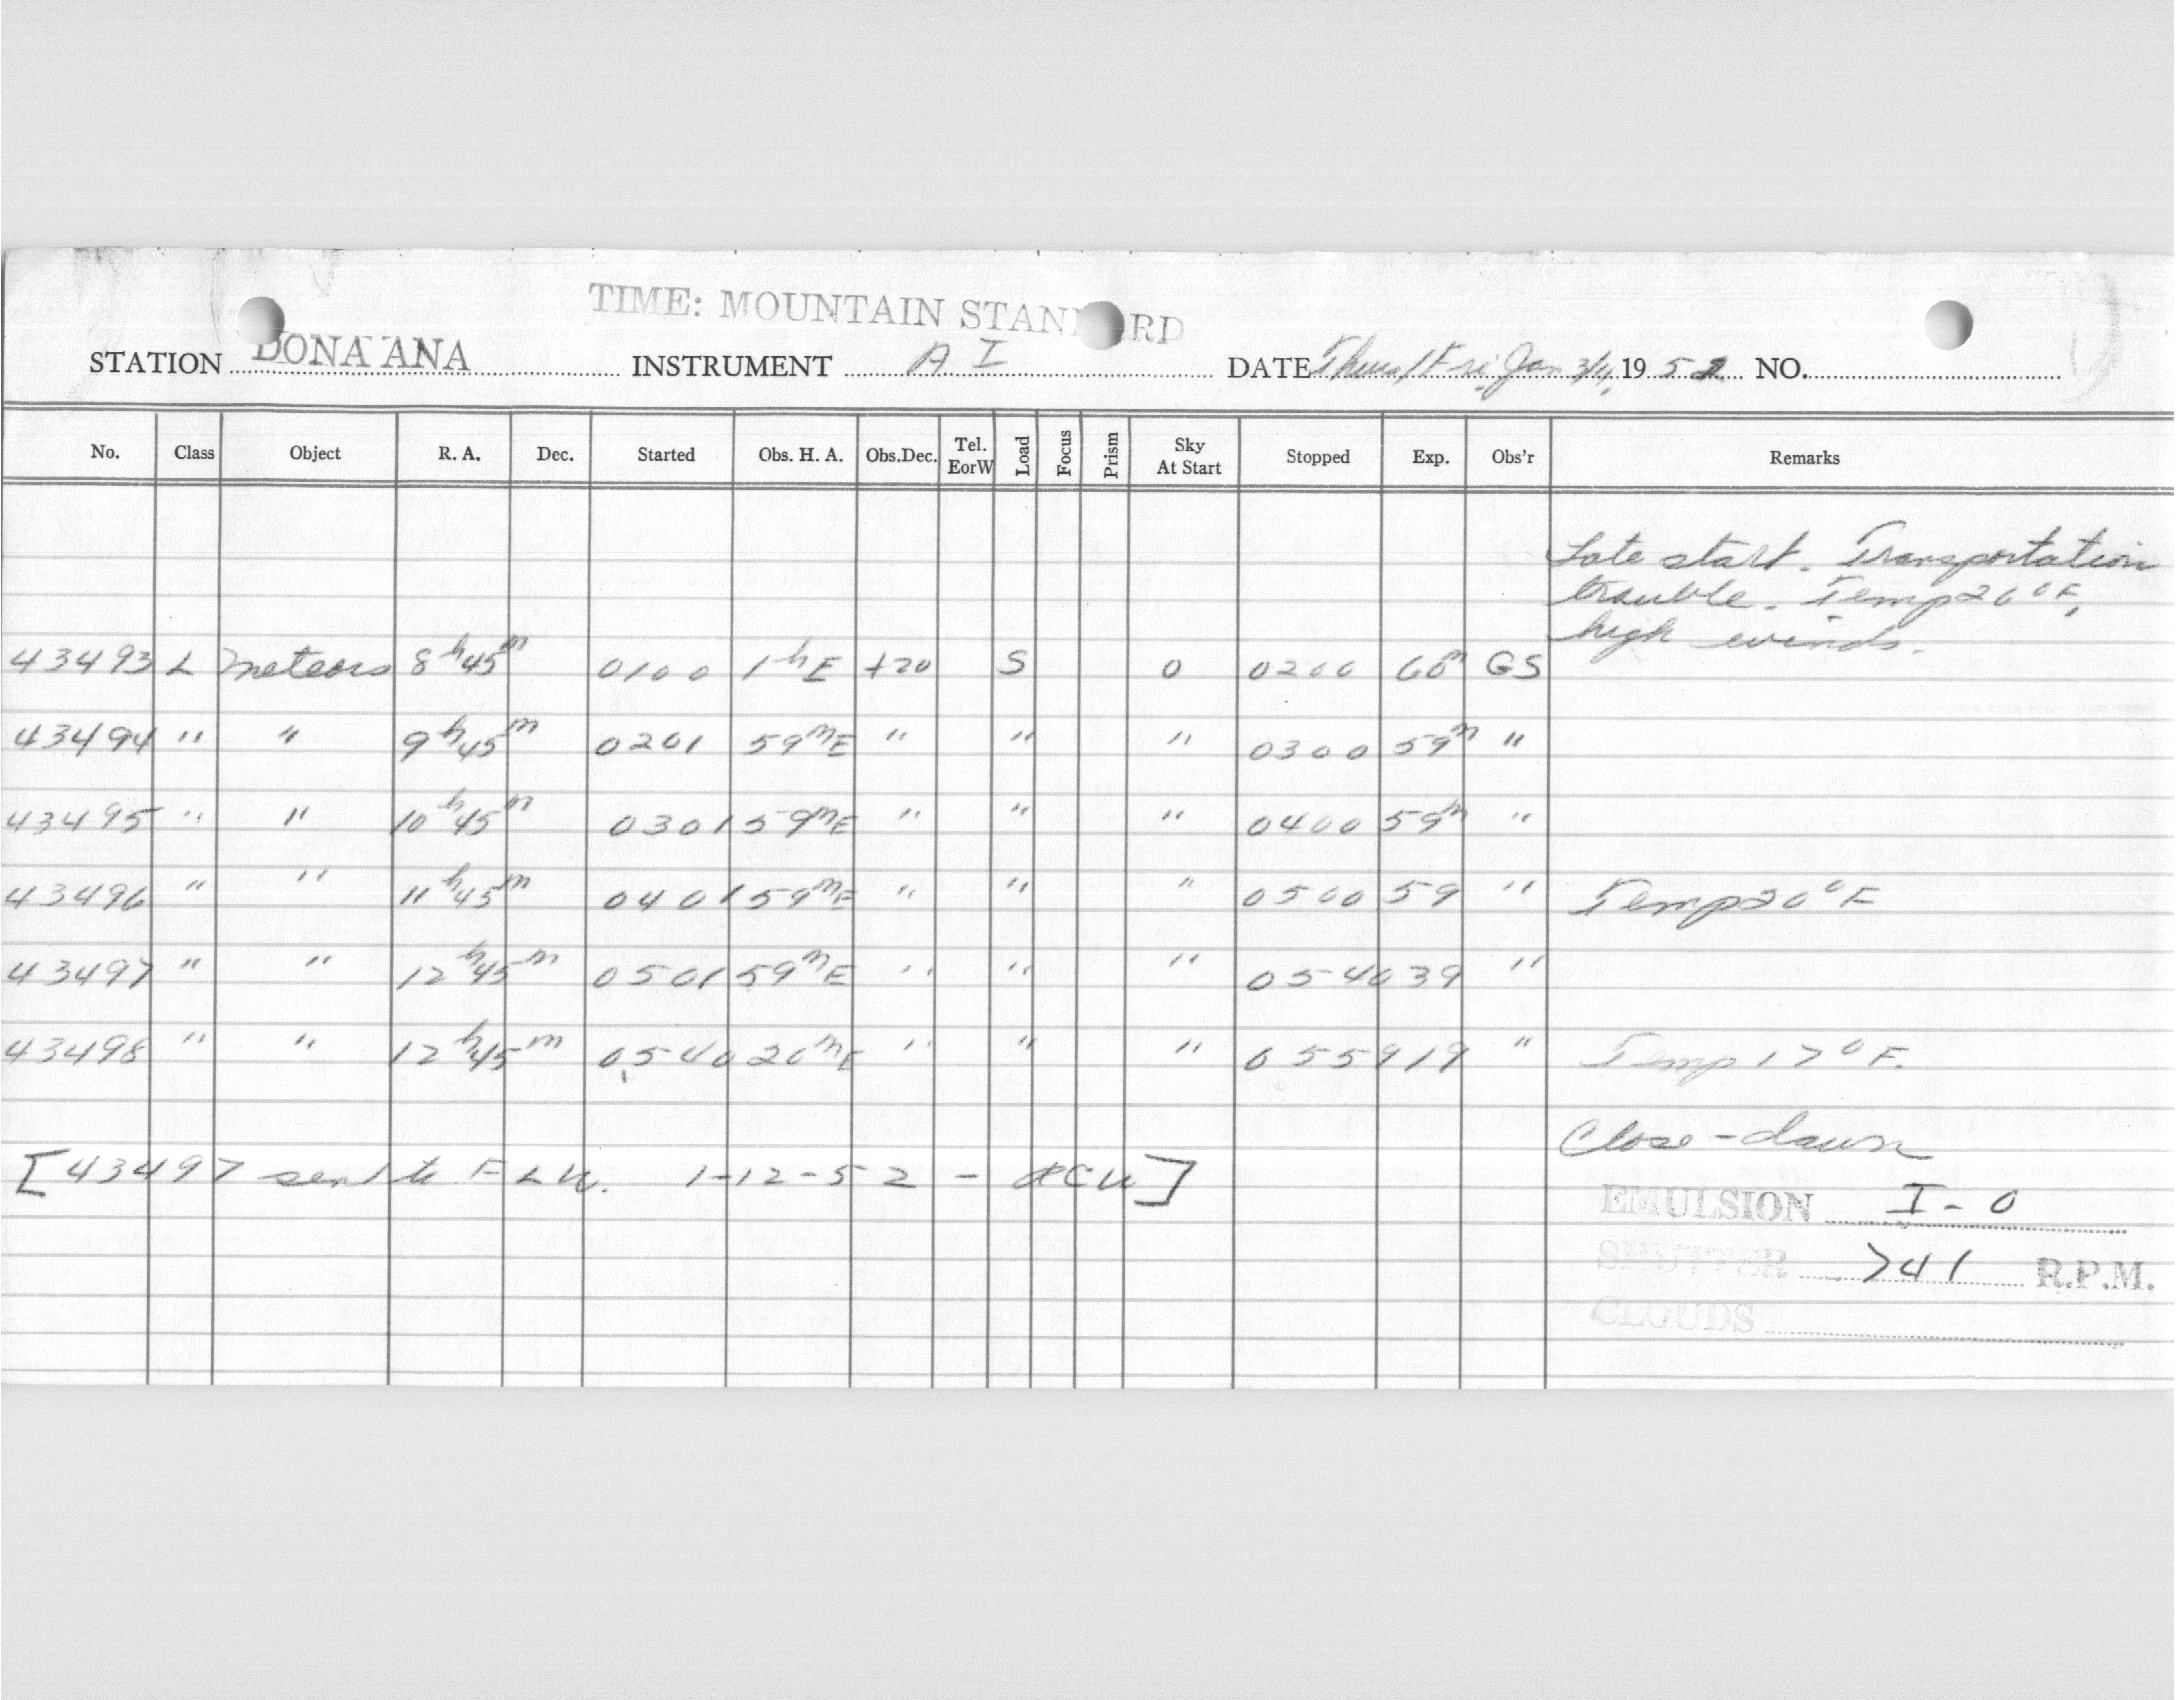 TIME: MOUNTAIN STANDARD
STATION DONA ANA INSTRUMENT A I DATE Thurs/Fri Jan 3/4, 1952 NO.
No. Class Object R. A. Dec. Started Obs. H. A. Obs.Dec. Tel. EorW Load Focus Prism Sky At Start Stopped Exp. Obs'r Remarks
Late start. Transportation
trouble. Temp 20°F,
high winds.
43493 L meteors 8h45m 0100 1hE +20 S 0 0200 60m GS
43494 " " 9h45m 0201 59mE " " " 0300 59m "
43495 " " 10h45m 0301 59mE " " " 0400 59m "
43496 " " 11h45m 0401 59mE " " " 0500 59 " Temp 20°F
43497 " " 12h45m 0501 59mE " " " 0540 39 "
43498 " " 12h45m 0540 20mE " " " 0559 19 " Temp 17°F.
Close-down
[43497 sent to 1-12-52 - ]
EMULSION I-0
SHUTTER 741 R.P.M.
CLOUDS